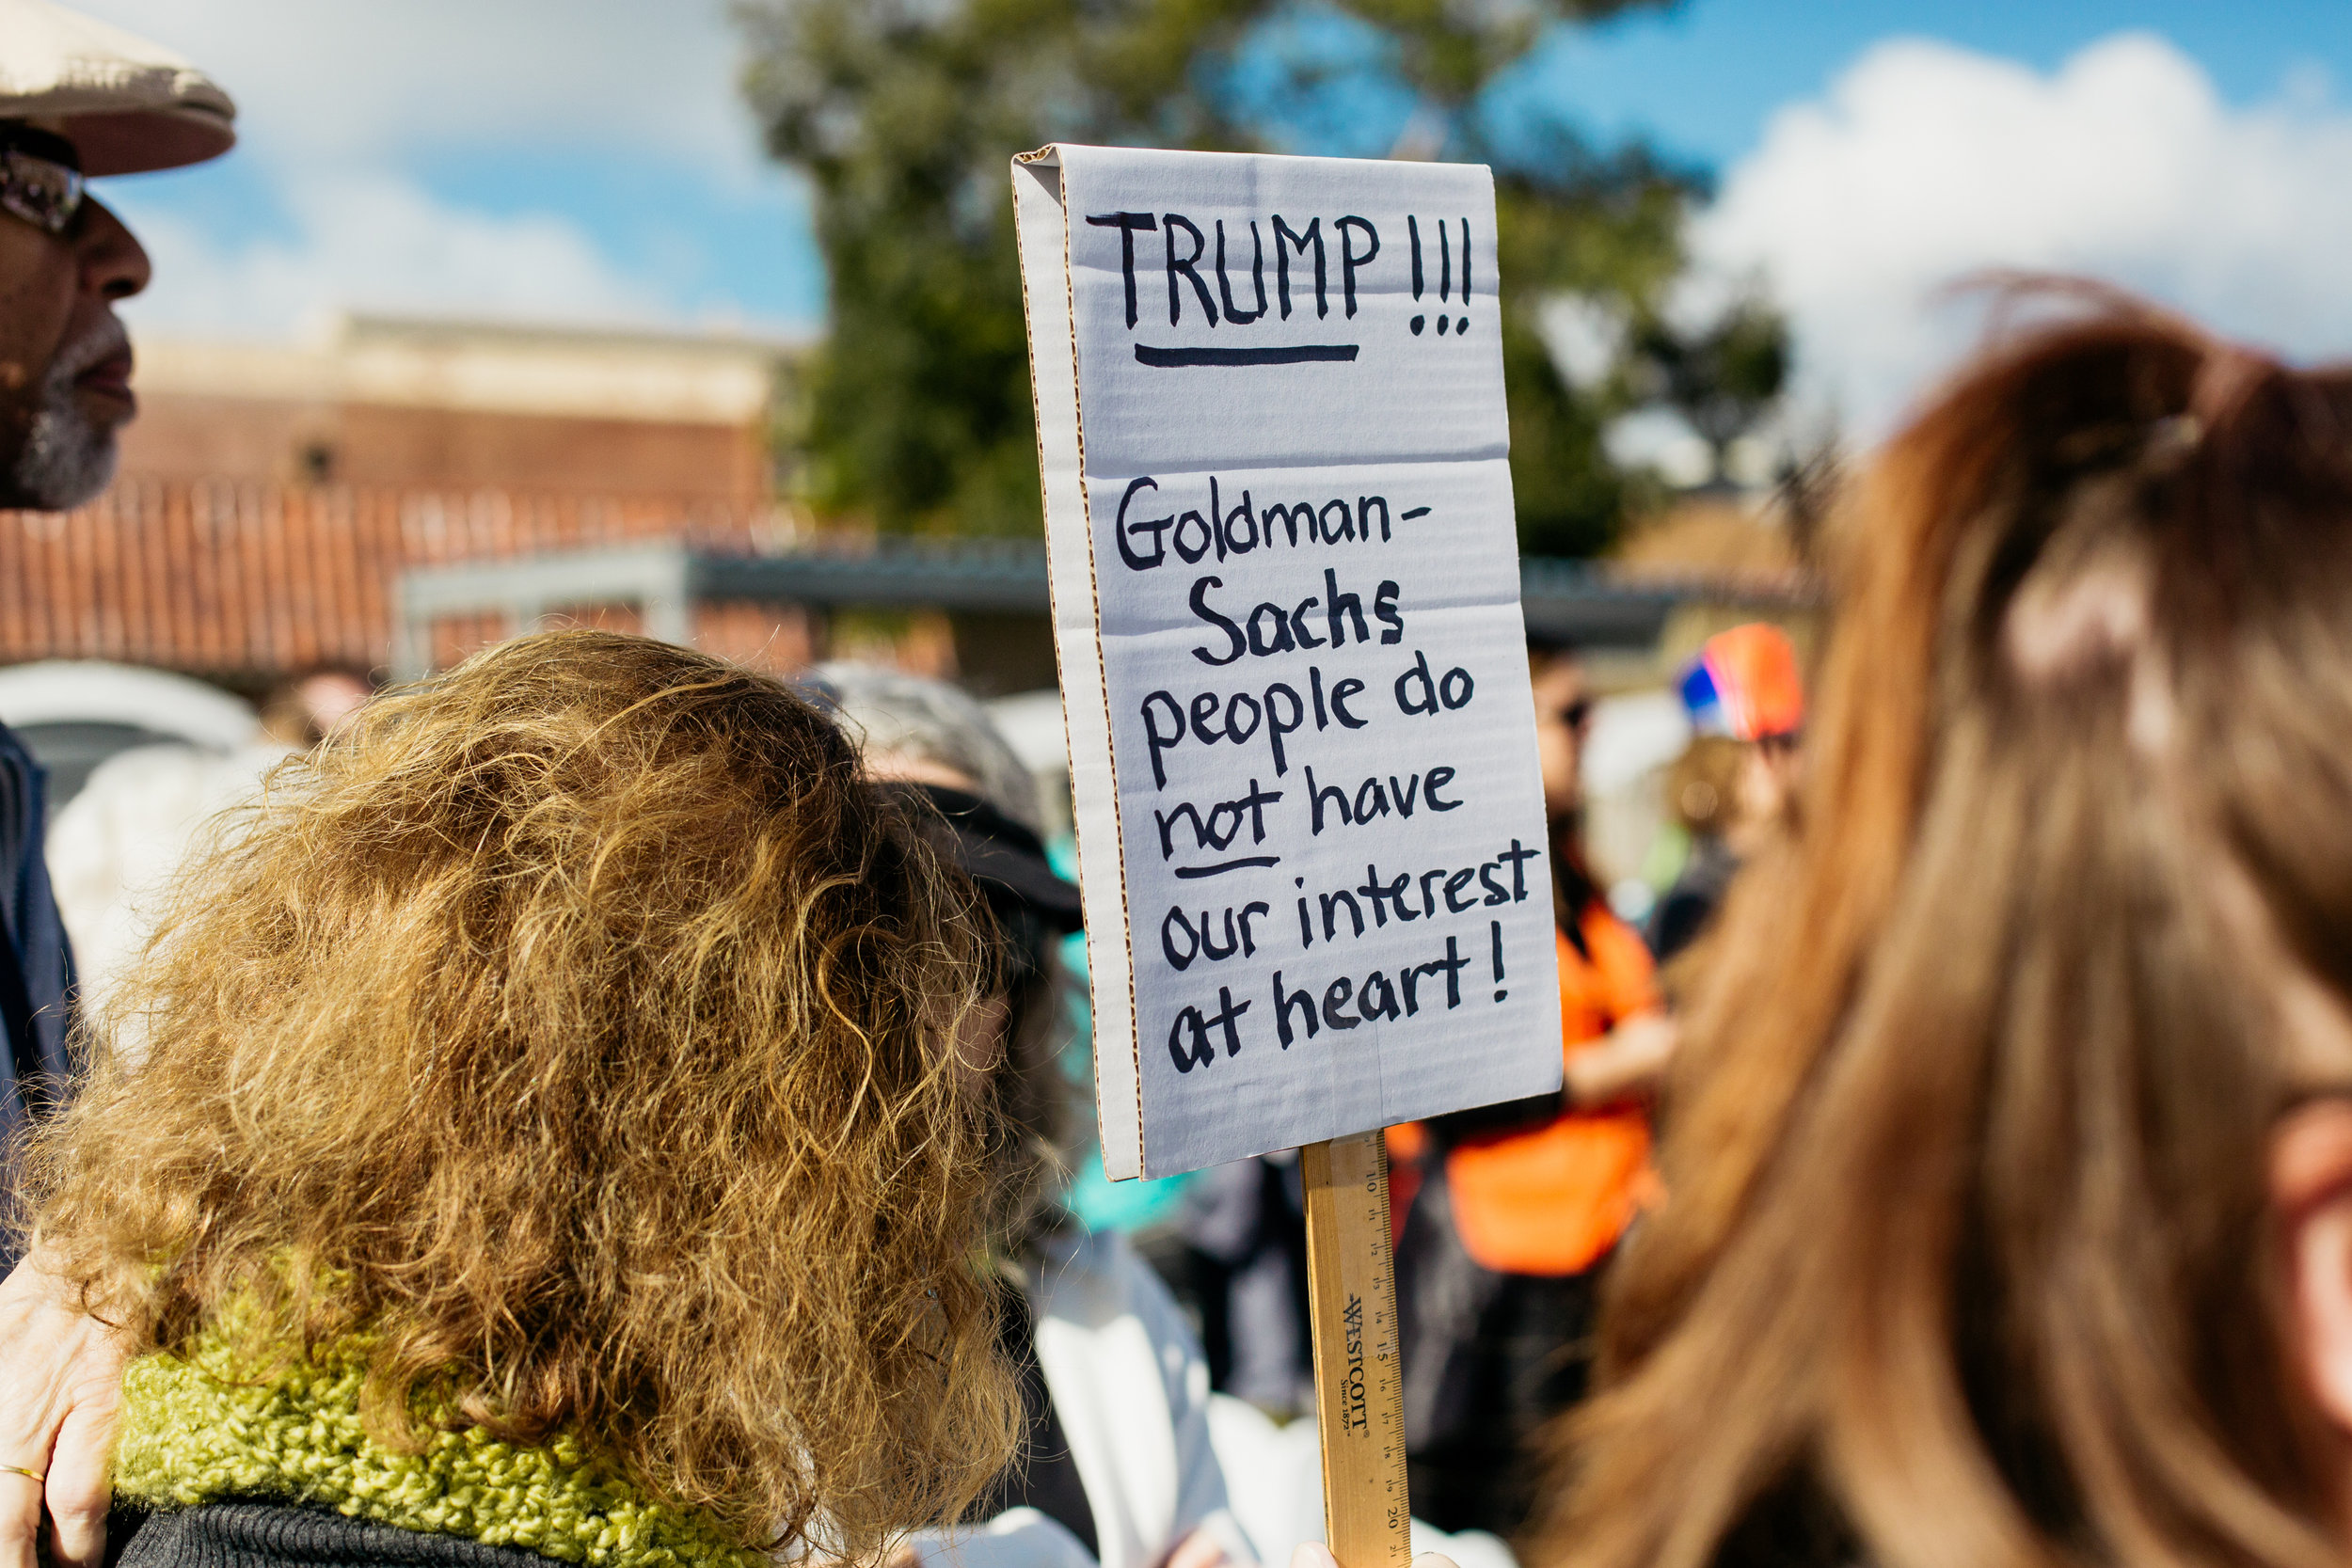 TRUMP!!!
Goldman-
Sachs
people do
not have
our interest
at heart!
WESTCOTT®
Since 1872
10
11
12
13
14
15
16
17
18
19
20
21